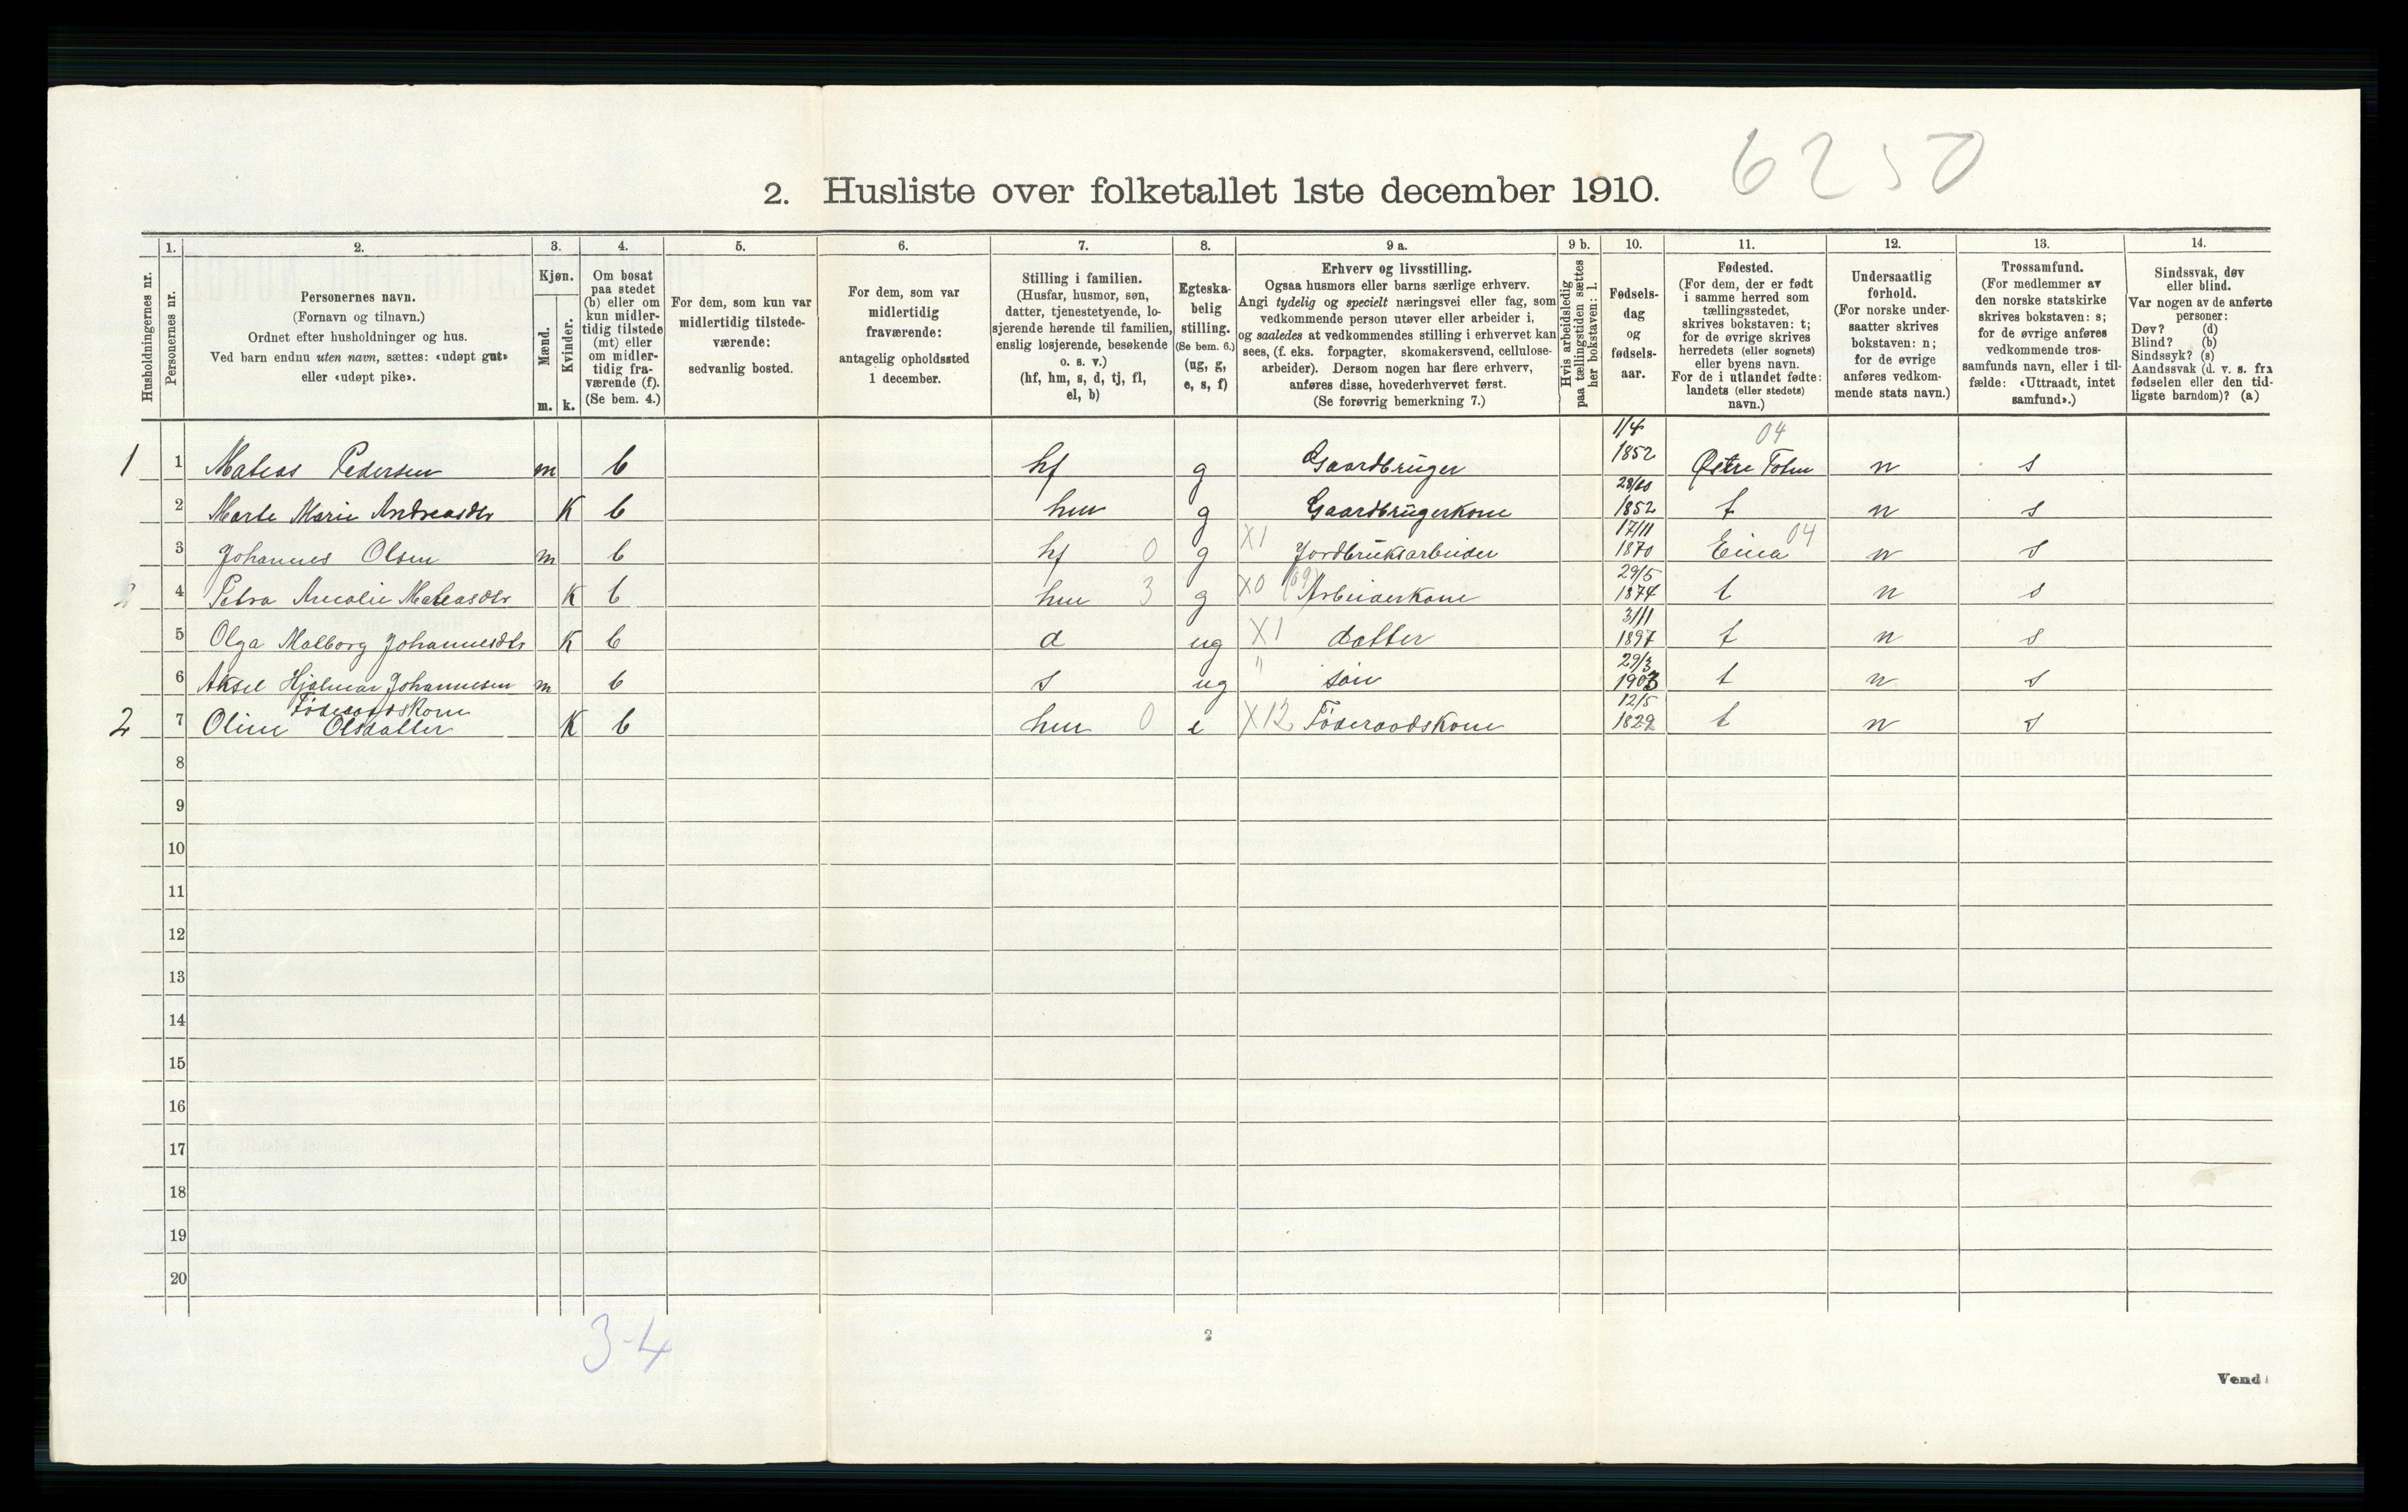 6250
2. Husliste over folketallet 1ste december 1910.
Husholdningernes nr.
1. Personernes nr.
2. Personernes navn. (Fornavn og tilnavn.) Ordnet efter husholdninger og hus. Ved barn endnu uten navn, sættes: «udøpt gut» eller «udøpt pike».
3. Kjøn. Mænd. m. Kvinder. k.
4. Om bosat paa stedet (b) eller om kun midlertidig tilstede (mt) eller om midlertidig fraværende (f). (Se bem. 4.)
5. For dem, som kun var midlertidig tilstedeværende: sedvanlig bosted.
6. For dem, som var midlertidig fraværende: antagelig opholdssted 1 december.
7. Stilling i familien. (Husfar, husmor, søn, datter, tjenestetyende, losjerende hørende til familien, enslig losjerende, besøkende o. s. v.) (hf, hm, s, d, tj, fl, el, b)
8. Egteskabelig stilling. (Se bem. 6.) (ug, g, e, s, f)
9 a. Erhverv og livsstilling. Ogsaa husmors eller barns særlige erhverv. Angi tydelig og specielt næringsvei eller fag, som vedkommende person utøver eller arbeider i, og saaledes at vedkommendes stilling i erhvervet kan sees, (f. eks. forpagter, skomakersvend, cellulosearbeider). Dersom nogen har flere erhverv, anføres disse, hovederhvervet først. (Se forøvrig bemerkning 7.)
9 b. Hvis arbeidsledig paa tællingstiden sættes her bokstaven: l.
10. Fødselsdag og fødselsaar.
11. Fødested. (For dem, der er født i samme herred som tællingsstedet, skrives bokstaven: t; for de øvrige skrives herredets (eller sognets) eller byens navn. For de i utlandet fødte: landets (eller stedets) navn.)
12. Undersaatlig forhold. (For norske undersaatter skrives bokstaven: n; for de øvrige anføres vedkommende stats navn.)
13. Trossamfund. (For medlemmer av den norske statskirke skrives bokstaven: s; for de øvrige anføres vedkommende trossamfunds navn, eller i tilfælde: «Uttraadt, intet samfund».)
14. Sindssvak, døv eller blind. Var nogen av de anførte personer: Døv? (d) Blind? (b) Sindssyk? (s) Aandssvak (d. v. s. fra fødselen eller den tidligste barndom)? (a)
1 1 Mateas Pedersen m b hf g Gaardbruger 1/4 1852 Østre Toten 04 n s
2 Marte Marie Andreasdtr K b hm g Gaardbrugerkone 28/10 1852 t n s
3 Johannes Olsen m b hf 0 g X1 Jordbruksarbeider 17/11 1870 Eina 04 n s
2 4 Petra Amalie Mateasdtr K b hm 3 g X0 Arbeiderkone 29/5 1874 t n s
5 Olga Malborg Johannesdtr K b d ug X1 datter 31/1 1897 t n s
6 Aksel Hjalmar Johannesen m b s ug " søn 29/3 1903 t n s
Føderaadskone
2 7 Oline Olsdatter K b hm 0 e X12 Føderaadskone 12/5 1829 t n s
8
9
10
11
12
13
14
15
16
17
18
19
20
3-4
2
Vend